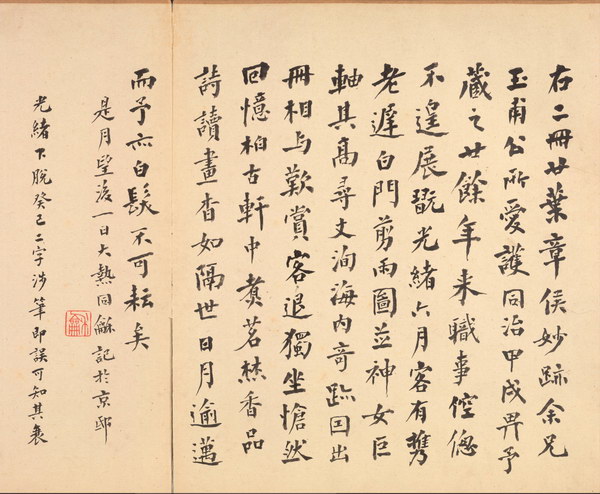 右二冊廿葉章侯妙跡余兄
玉甫公所愛護同治甲戌畀予
藏之廿餘年来職事倥傯
不遑展翫光緒六月客有攜
老遲白門剪雨圖並神女巨
軸其高尋丈洵海内竒跡囙出
冊相与歎賞客退獨坐愴然
回憶柏古軒中煑茗焚香品
詩讀畫杳如隔世日月逾邁
而予亦白髮不可耘矣
是月望後一日大熱同龢記於京邸
光緒下脫癸巳二字涉筆即誤可知其衰